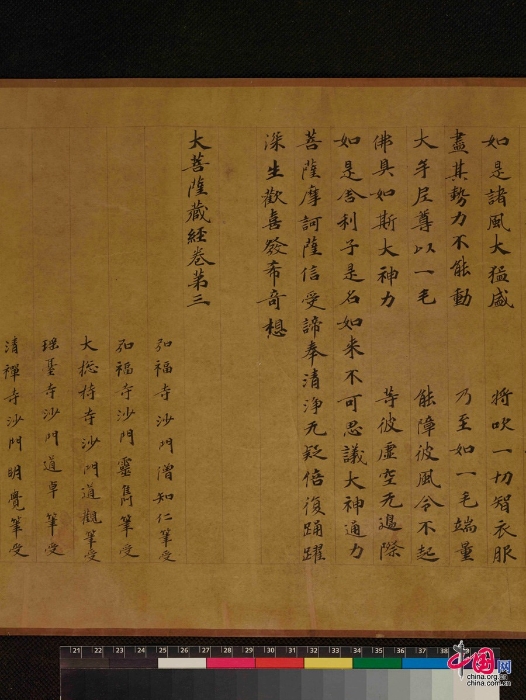 如是諸風大猛盛 將吹一切智衣服
盡其勢力不能動 乃至如一毛端量
大牟尼尊以一毛 能障彼風令不起
佛具如斯大神力 等彼虛空无邊際
如是舍利子是名如来不可思議大神通力
菩薩摩訶薩信受諦奉清淨无疑倍復踊躍
深生歡喜發希奇想
大菩薩蔵經卷第三
弘福寺沙門僧知仁筆受
弘福寺沙門靈雋筆受
大捴持寺沙門道觀筆受
瑶臺寺沙門道卓筆受
清禪寺沙門明覺筆受
21 22 23 24 25 26 27 28 29 30 31 32 33 34 35 36 37 38
中国网
china.org.cn
china.com.cn